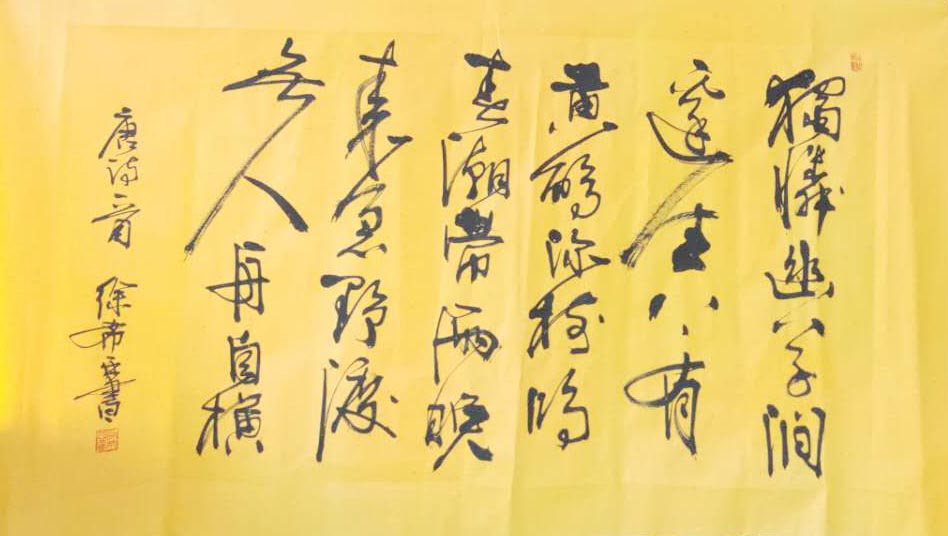 獨憐幽草澗
邊生上有
黄鸝深樹鳴
春潮帶雨晚
来急野渡
無人舟自横
唐詩一首 徐希書